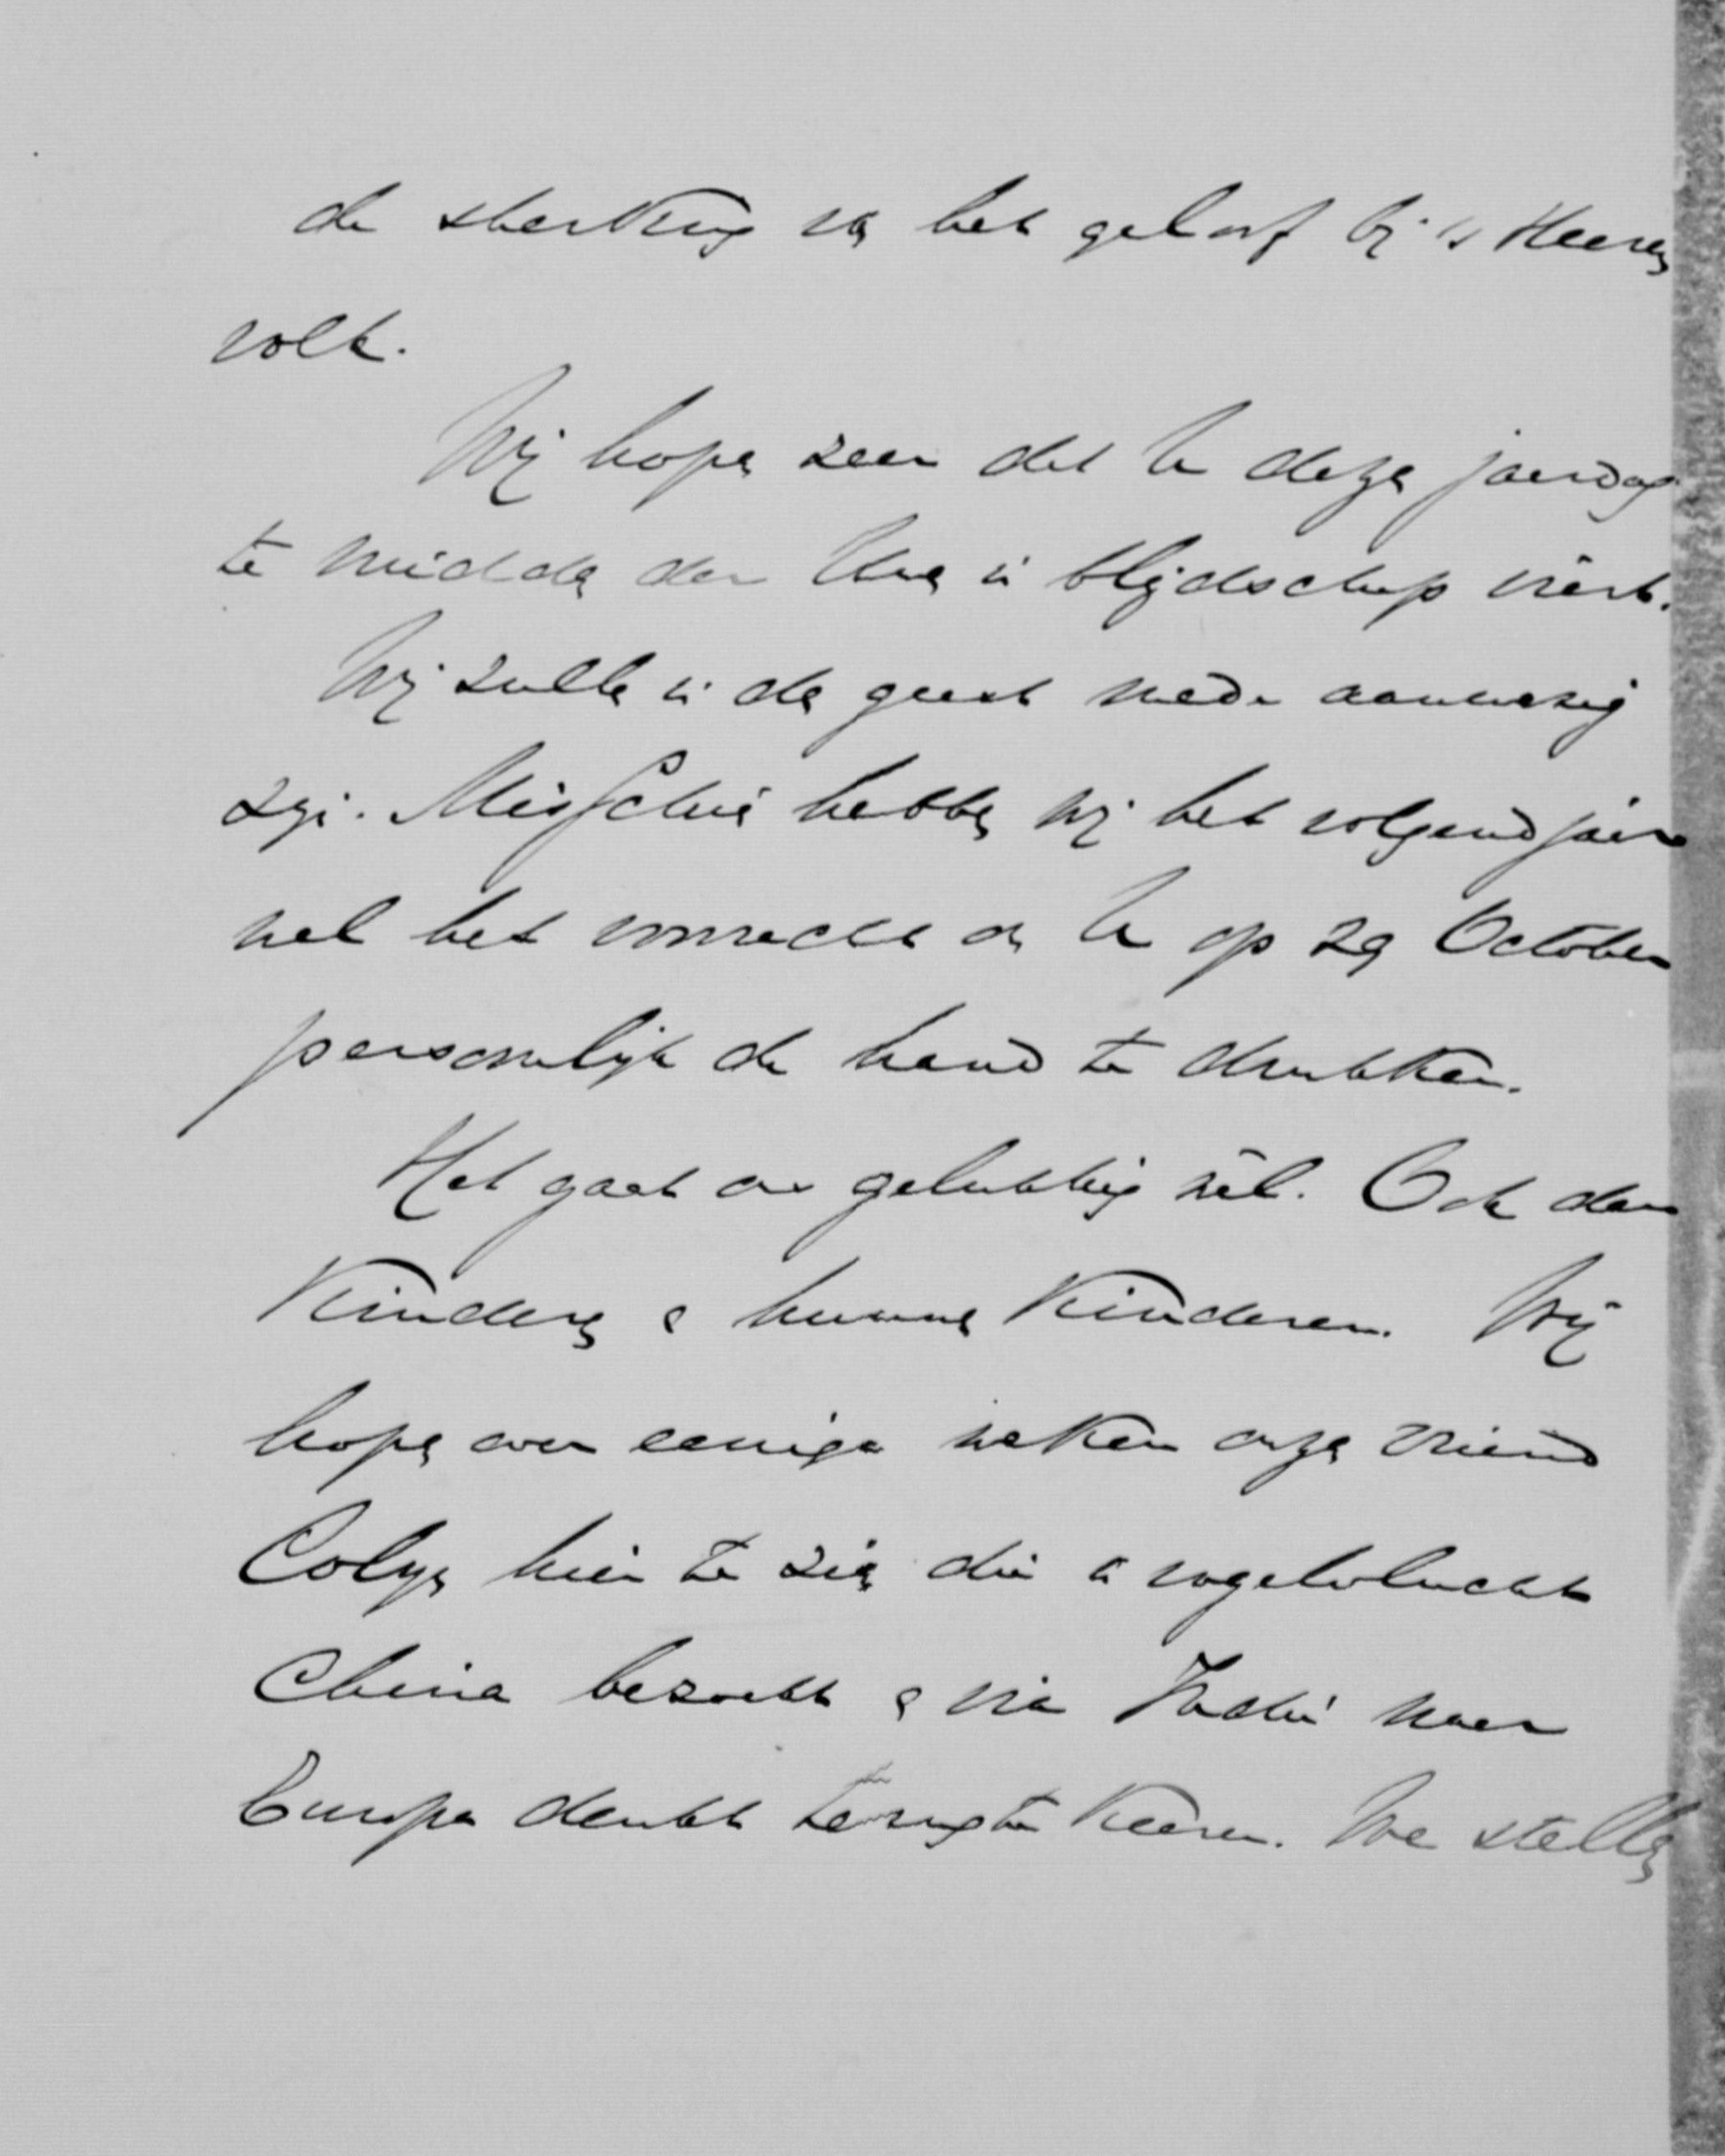 de sterking van het geloof bij 's Heeren
volk.
Wij hopen zeer dat U dezen jaardag
te midden der Uwen in blijdschap viert.
Wij zullen in den geest mede aanwezig
zijn. Misschien hebben wij het volgend jaar
wel het voorrecht om U op 29 October
persoonlijk de hand te drukken.
Het gaat ons gelukkig wèl. Ook den
kinderen en hunne kinderen. Wij
hopen over eenige weken onzen vriend
Colijn hier te zien die in vogelvlucht
China bezoekt en via Indië naar
Europa denkt terug te keeren. We stellen